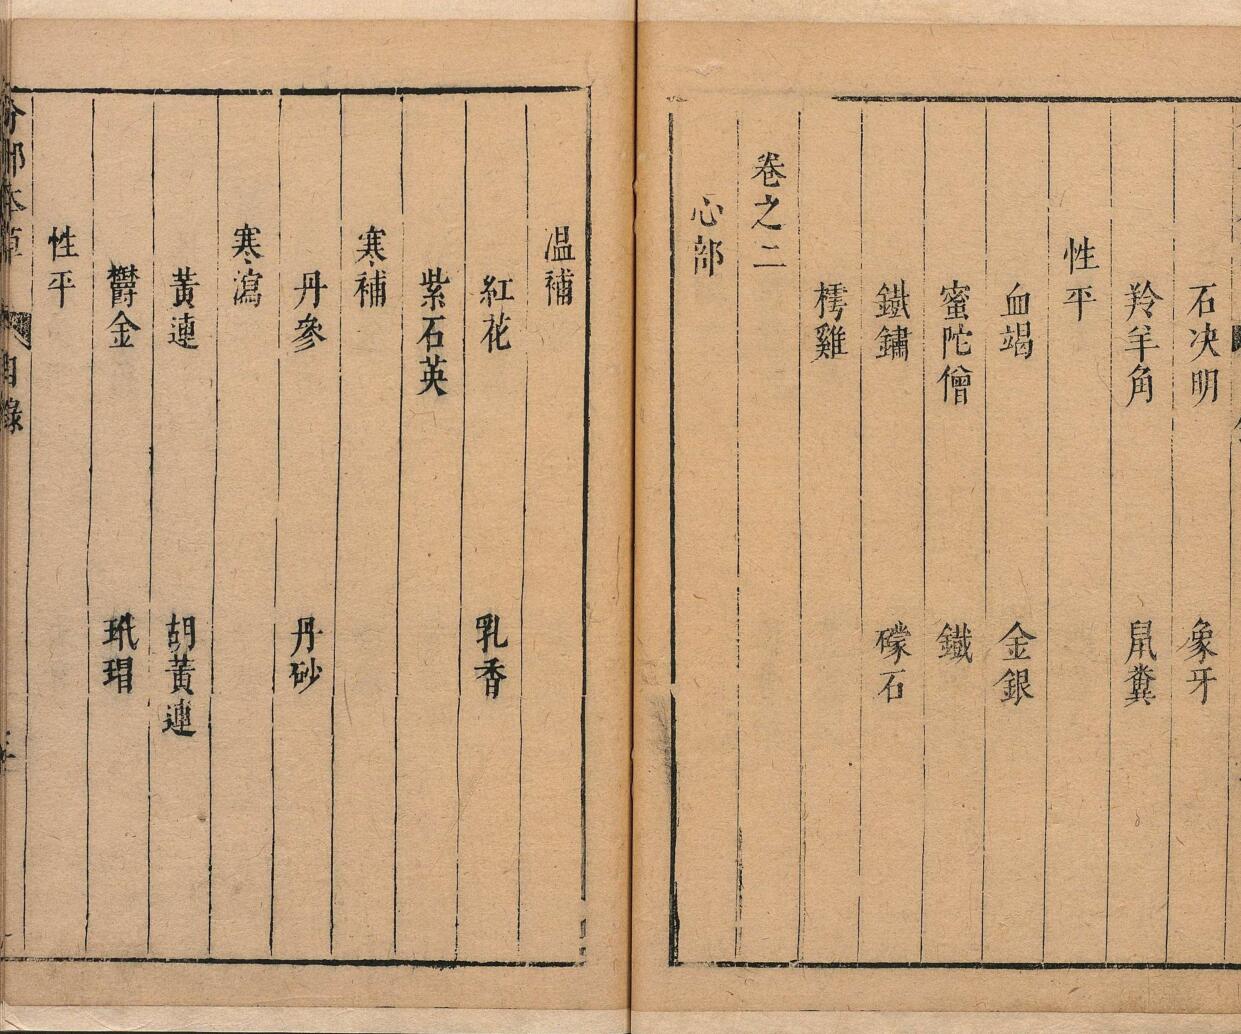 石决明　象牙
羚羊角　鼠糞
性平
血竭　金銀
蜜陀僧　鐵
鐵鏽　礞石
樗雞
卷之二
心部
温補
紅花　乳香
紫石英
寒補
丹參　丹砂
寒瀉
黃連　胡黃連
鬱金　玳瑁
性平
分部本草　目錄